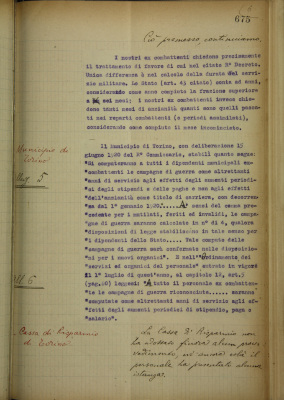 675
Ciò premesso, continuiamo.
I nostri ex combattenti chiedono precisamente
il trattamento di favore di cui nel citato R° Decreto.
Unica differenza è nel calcolo della durata del servi-
zio militare. Lo Stato (art. 41 citato) conta ad anni,
considerando anno come compiuto la frazione superiore
a sei mesi; i nostri ex combattenti invece chiedo-
no tanti anni di anzianità quanti sono quelli passa-
ti nei reparti combattenti (o periodi assimilati),
considerando anno compiuto il anno incominciato.
Municipio di
Torino
All. 5
Il Municipio di Torino, con deliberazione 15
giugno 1928 del R° Commissario, stabilì quanto segue:
"Si computeranno a tutti i dipendenti municipali ex
combattenti le campagne di guerra come altrettanti
anni di servizio agli effetti degli aumenti periodi-
ci degli stipendi e delle paghe e non agli effetti
dell'anzianità come titolo di carriera, con decorren-
za dal 1° gennaio
per i mutilati, feriti ed invalidi, le campa-
gne di guerra saranno calcolate in n° di 4, qualora
disposizioni di legge stabiliscano in tale senso per
i dipendenti dello Stato..... Tale computo delle
campagne di guerra sarà confermato nelle disposizio-
ni per i nuovi organici".
All. 6
servizi ed organici del personale" entrato in vigore
il 1° luglio di quest'anno, al capitolo 12, art.
leggesi: "A tutto il personale ex combatten-
te le campagne di guerra riconosciute..... saranno
computate come altrettanti anni di servizio agli ef-
fetti degli aumenti periodici di stipendio, paga e
salario".
Cassa di Risparmio
di Torino
La Cassa di Risparmio non
ha adottato finora alcun prov-
vedimento, nè consta che il
personale ha presentato alcuna
istanza.